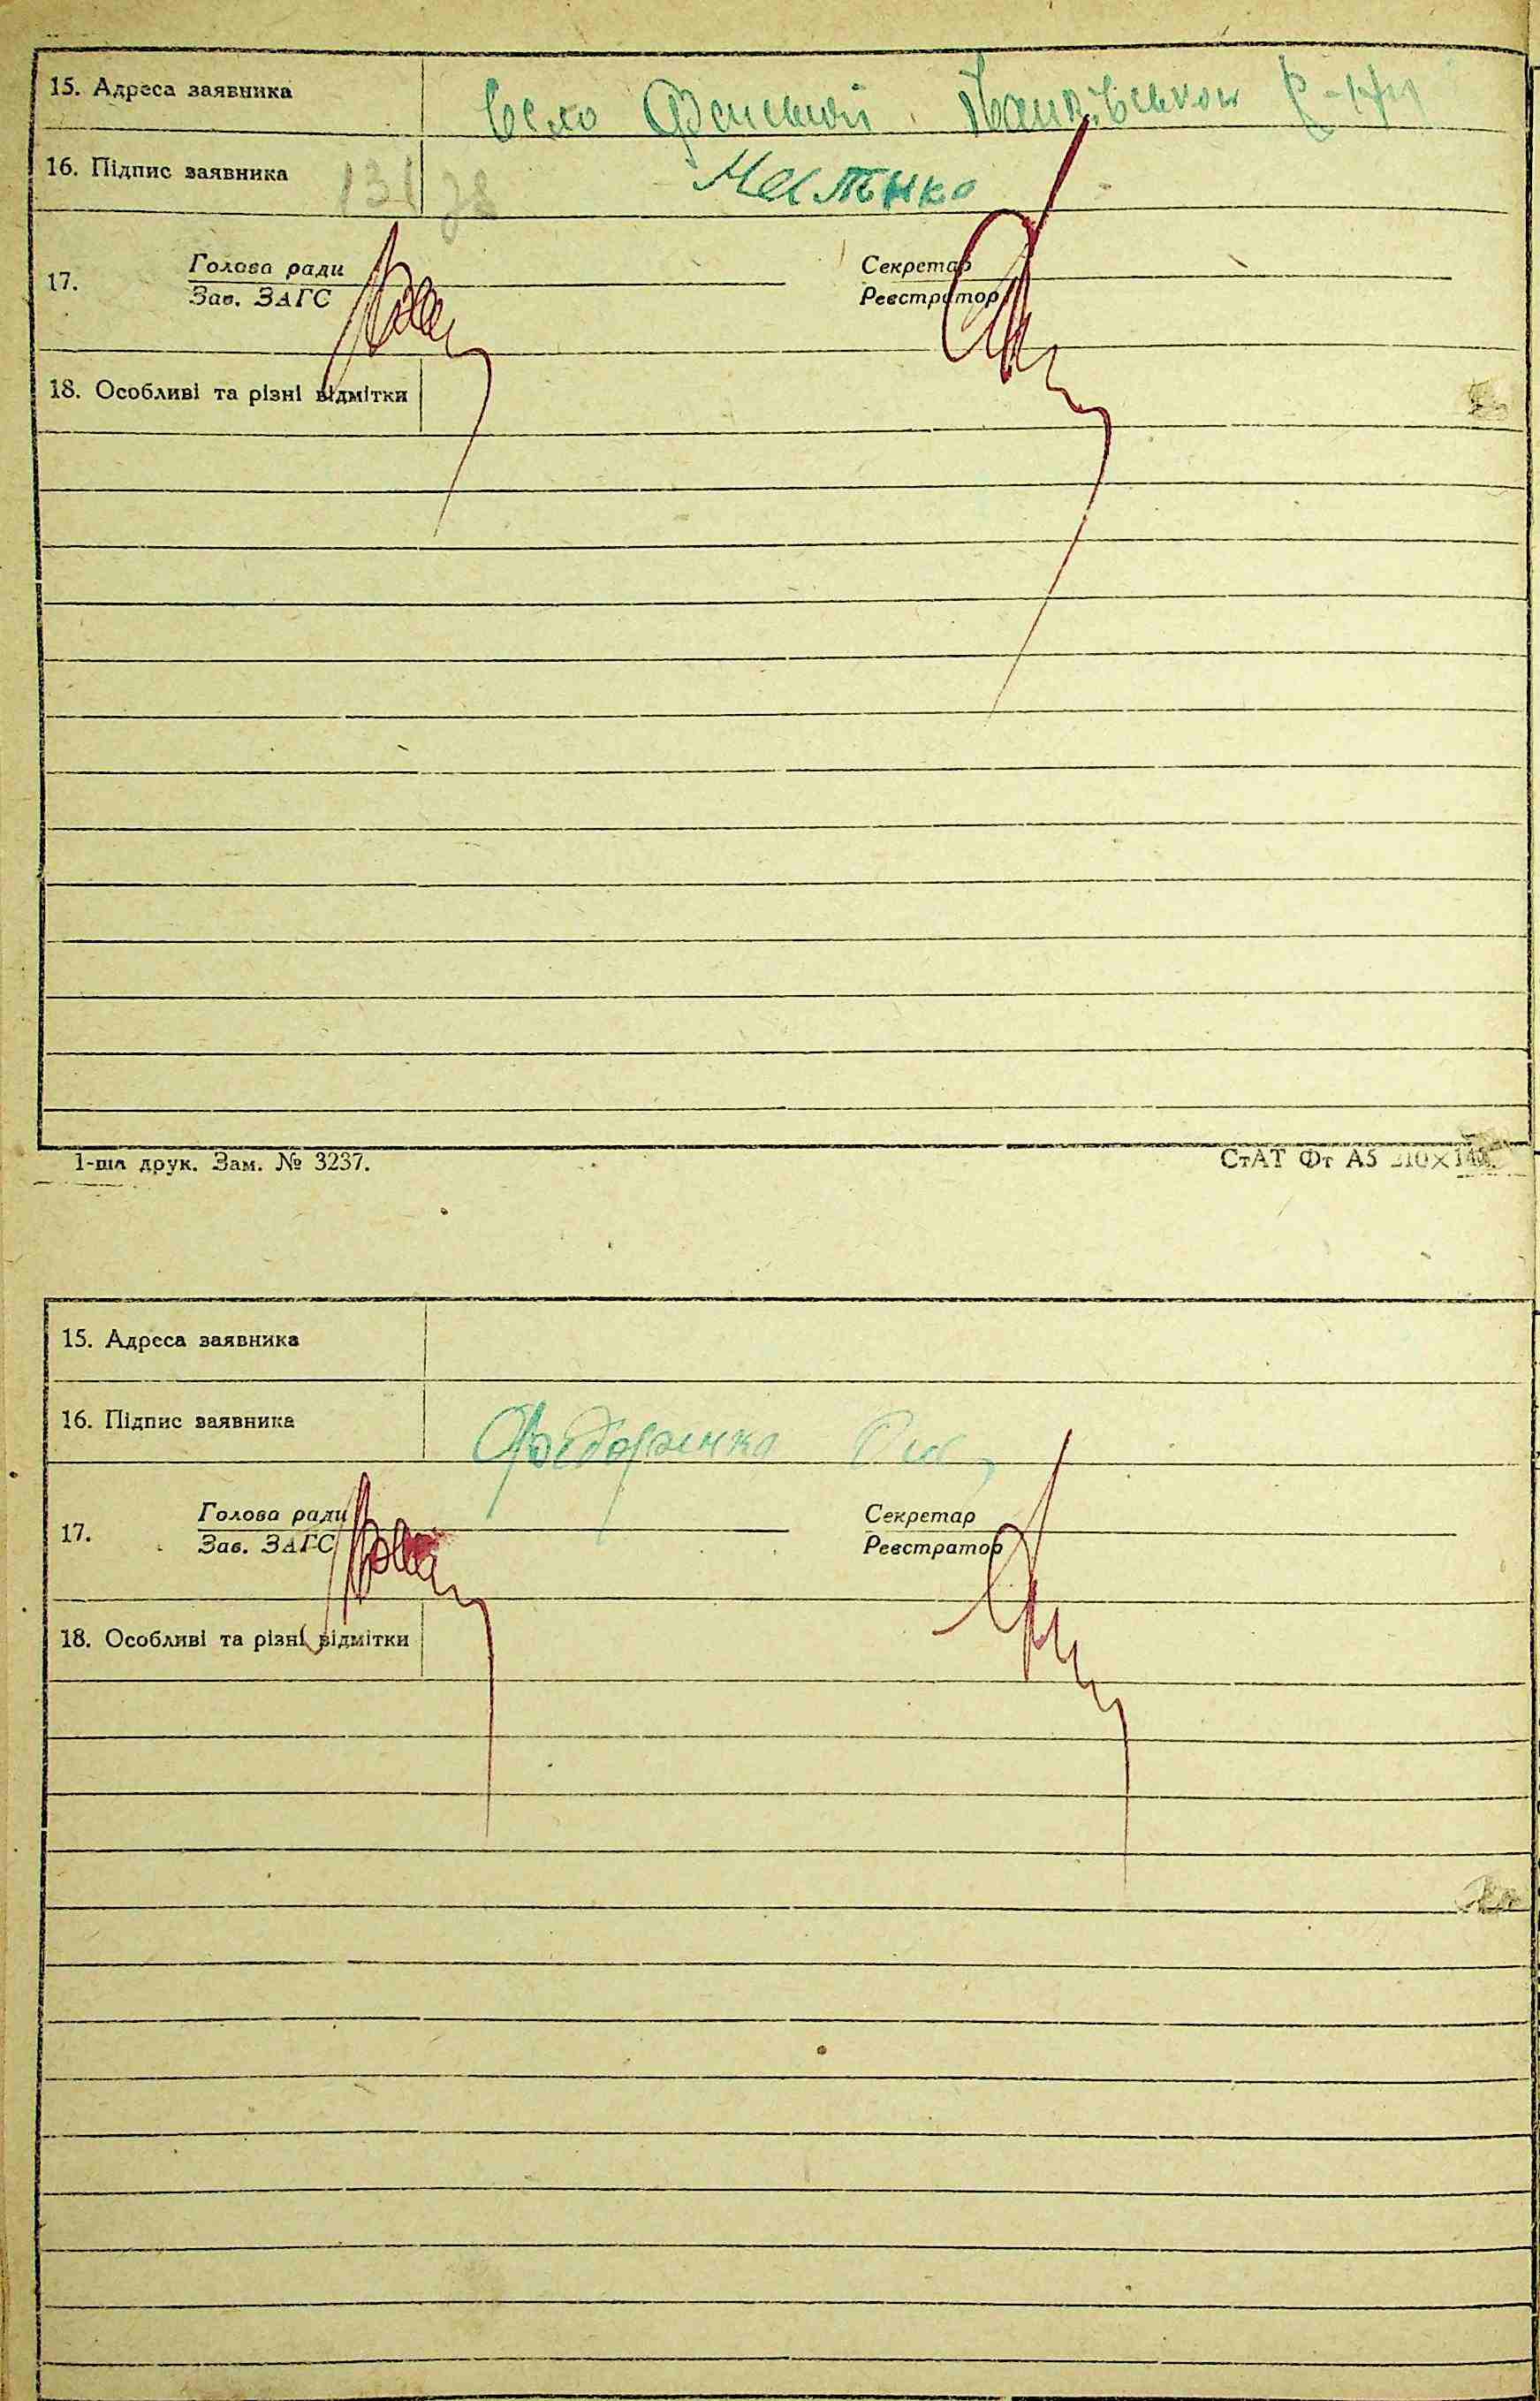 15. Адреса заявника село
16. Підпис заявника
17. Голова ради Секретар
Зав. ЗАГС Реєстратор
18. Особливі та різні відмітки
1-ша друк. Зам. № 3237. СтАТ Фт А5 210×148.
15. Адреса заявника
16. Підпис заявника Федоренко
17. Голова ради Секретар
Зав. ЗАГС Реєстратор
18. Особливі та різні відмітки